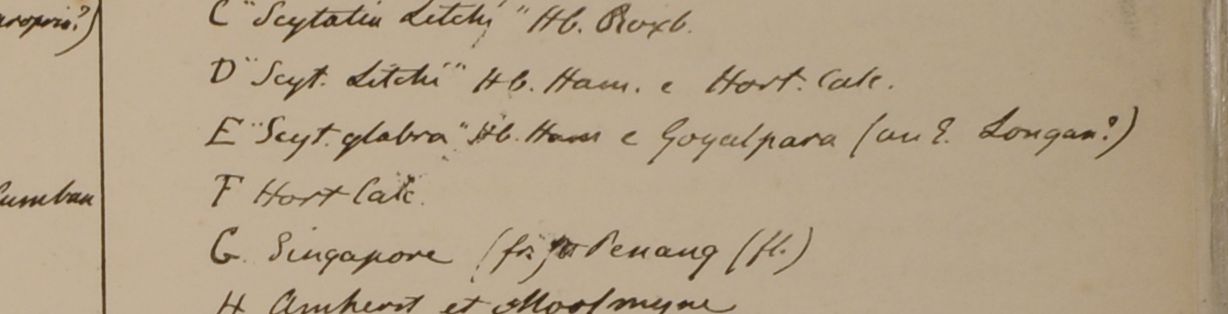 C "Scytalia Litchi" Hb. Roxb.
D "Scyt. Litchi" Hb. Ham. e Hort. Calc.
E "Scyt. glabra" Hb. Ham e Goyalpara (an E. Longan?)
F Hort Calc.
G Singapore (fr.) Penang (fl.)
H Amherst et Moolmyne